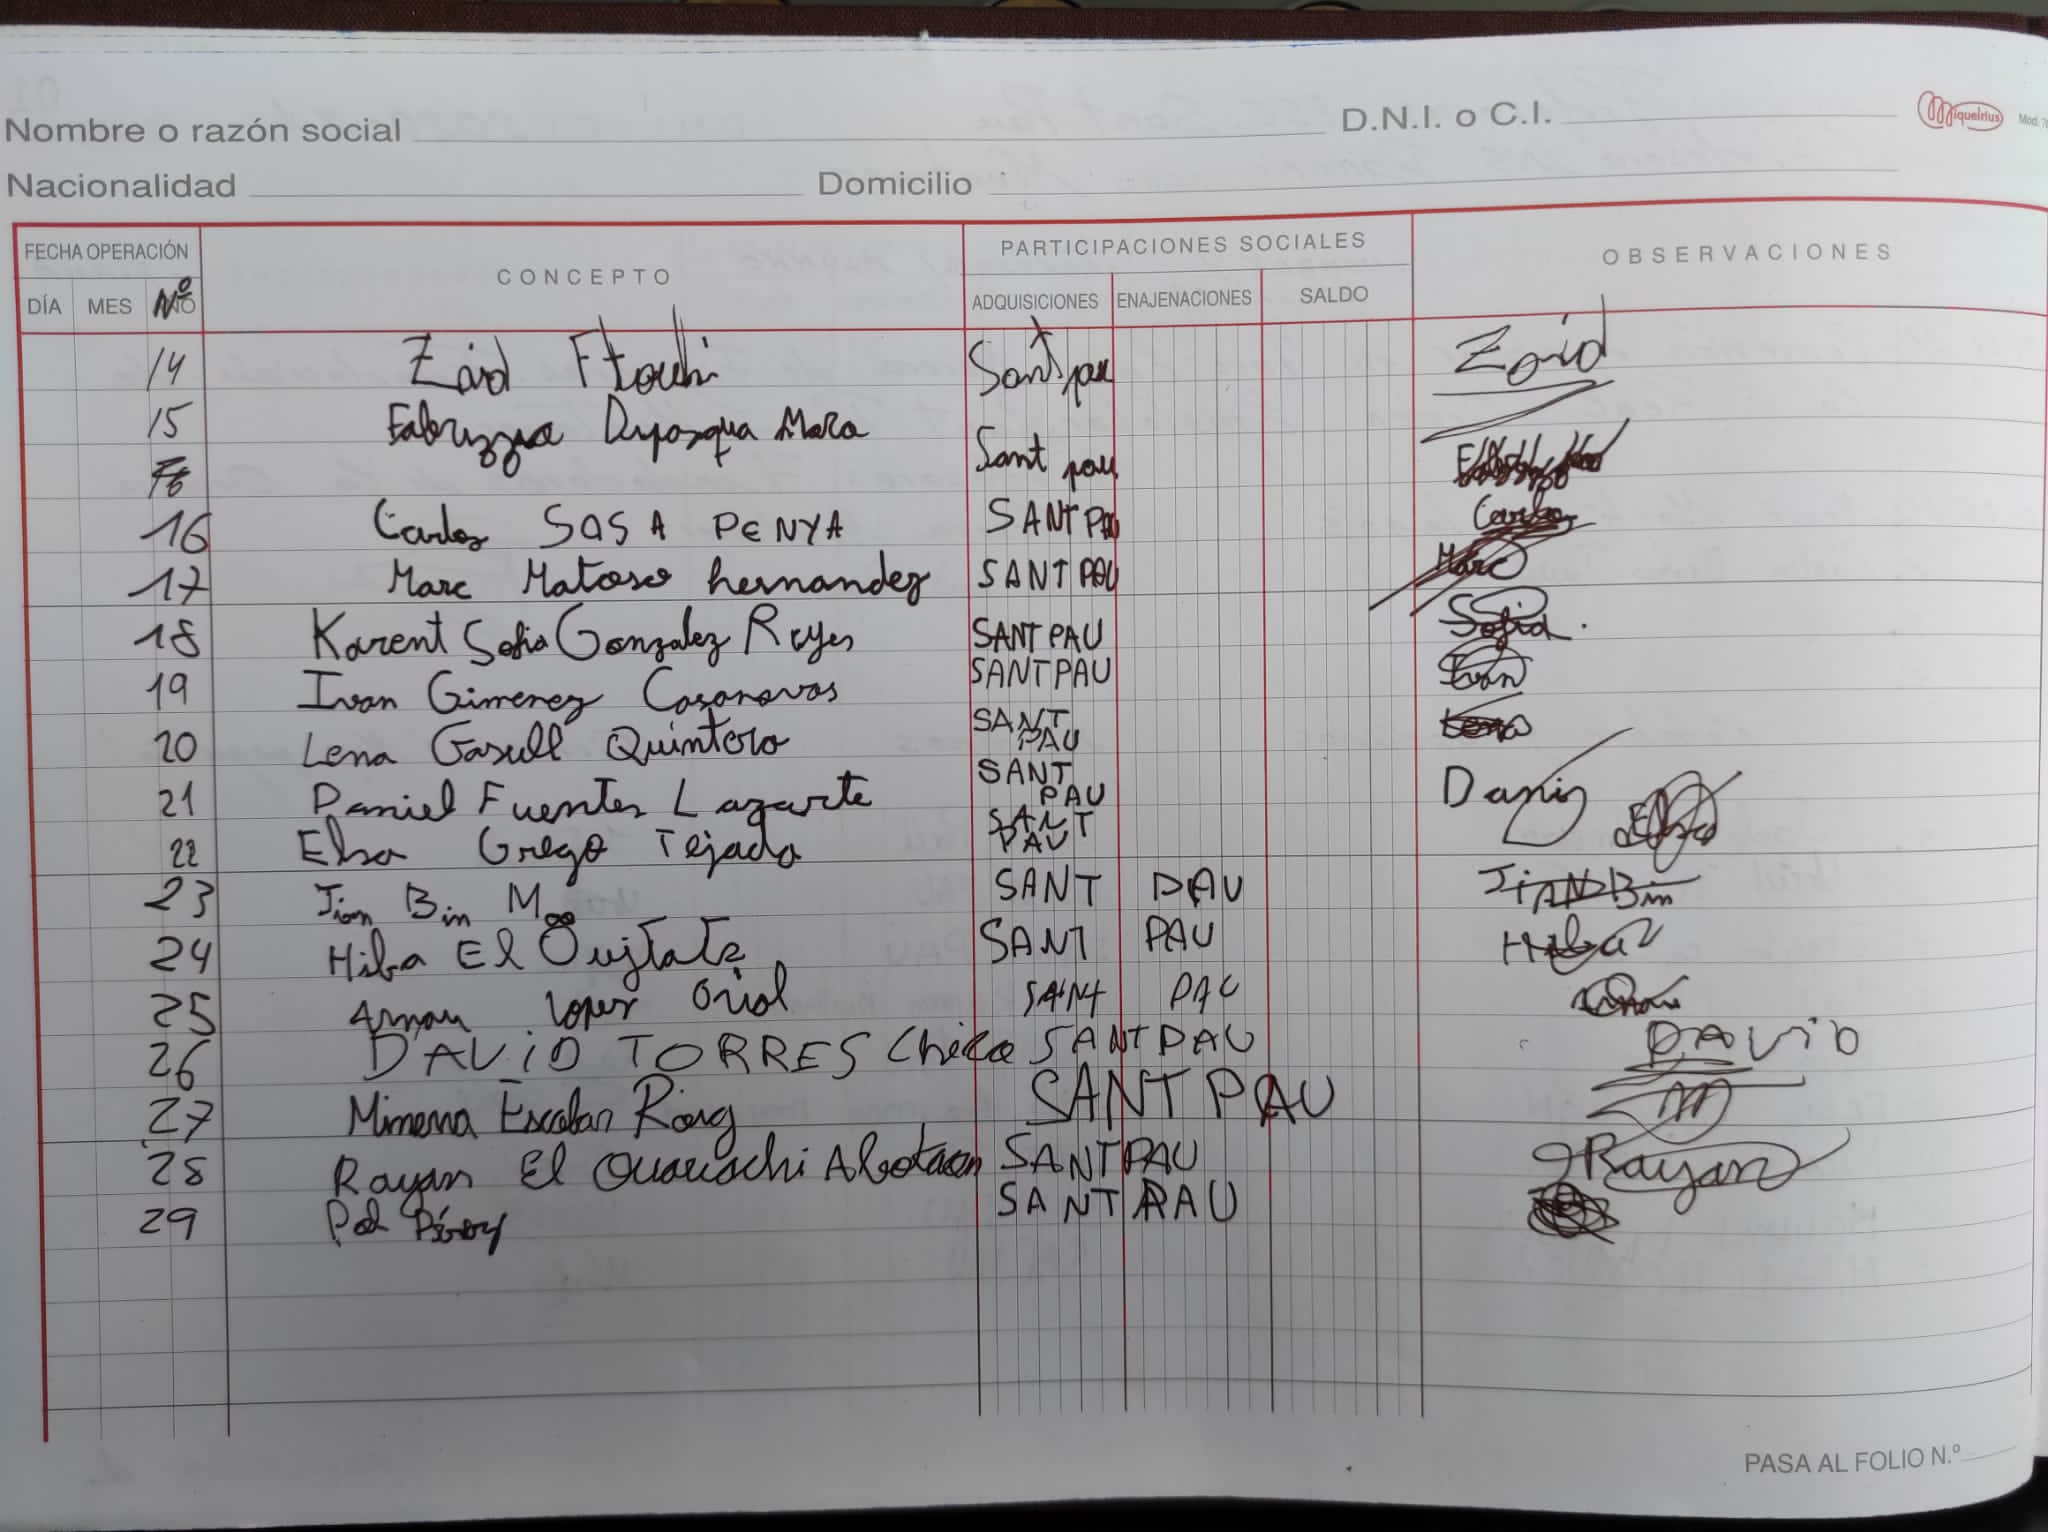 Nombre o razón social D.N.I. o C.I. Miquelrius Mod.
Nacionalidad Domicilio
FECHA OPERACIÓN CONCEPTO PARTICIPACIONES SOCIALES OBSERVACIONES
DÍA MES Nº ADQUISICIONES ENAJENACIONES SALDO
14 Zaid Ftouhi Sant pau Zaid
15 Sant pau
16 Carlos SOSA PENYA SANT PAU Carlos
17 Marc Matoso hernandez SANT PAU Marc
18 Karent Sofia Gonzalez Reyes SANT PAU Sofia.
19 Ivan Gimenez Casanovas SANT PAU Ivan
20 Lena Gasull Quintero SANT PAU Lena
21 Daniel Fuentes Lazarte SANT PAU Dani
22 Elsa Grego Tejada SANT PAU Elsa
23 Jian Bin Mao SANT PAU JiAN Bin
24 Hiba El SANT PAU Hiba
25 Arnau lopez Oriol SANT PAU Arnau
26 DAViD TORRES Chica SANT PAU DAViD
27 Minerva Escobar Roig SANT PAU M
28 Rayan El SANT PAU Rayan
29 Pol SANT PAU
PASA AL FOLIO N.º